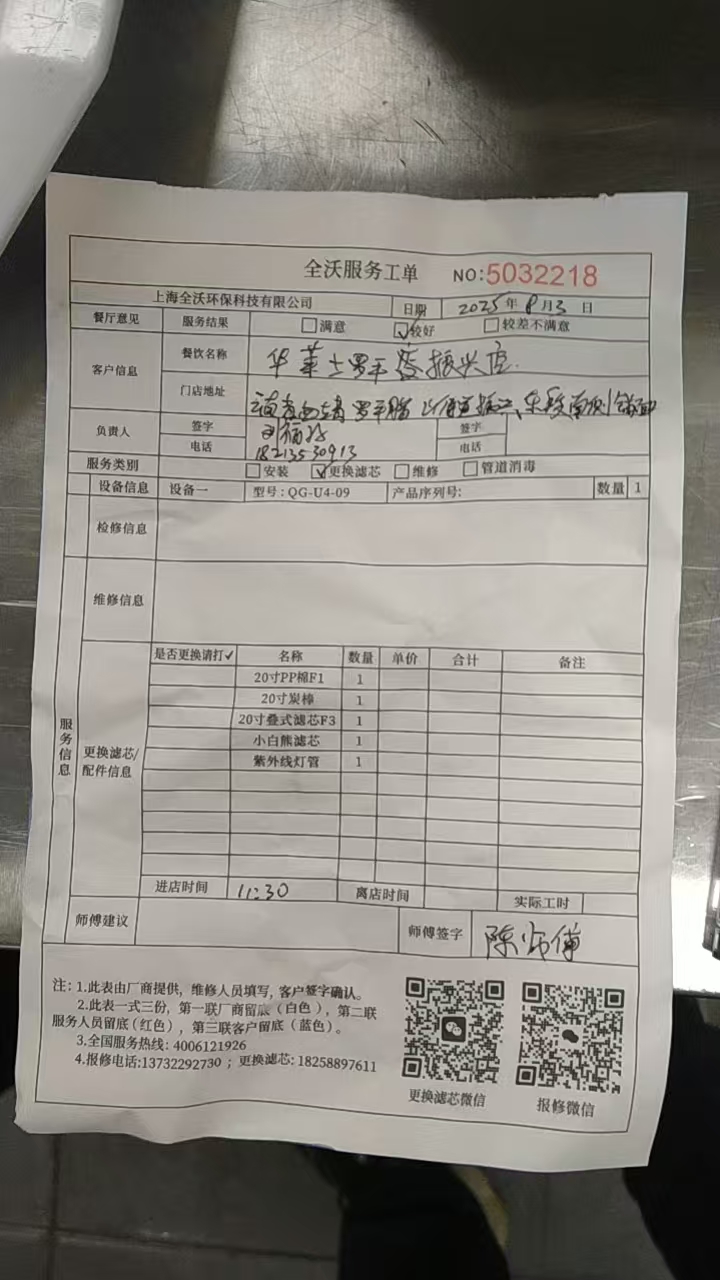 全沃服务工单 NO:5032218
上海全沃环保科技有限公司 日期 2025年8月3日
餐厅意见 服务结果 □满意 ☑较好 □较差不满意
客户信息 餐饮名称 华莱士罗平 振兴店
门店地址 云南省曲靖 罗平县
负责人 签字 签字
电话 18213530913 电话
服务类别 □安装 ☑更换滤芯 □维修 □管道消毒
设备信息 设备一 型号:QG-U4-09 产品序列号: 数量 1
检修信息
维修信息
服务信息
更换滤芯/配件信息
是否更换请打✓ 名称 数量 单价 合计 备注
20寸PP棉F1 1
20寸炭棒 1
20寸叠式滤芯F3 1
小白熊滤芯 1
紫外线灯管 1
进店时间 11:30 离店时间 实际工时
师傅建议 师傅签字 陈师傅
注:1.此表由厂商提供,维修人员填写,客户签字确认。
2.此表一式三份,第一联厂商留底(白色),第二联
服务人员留底(红色),第三联客户留底(蓝色)。
3.全国服务热线:4006121926
4.报修电话:13732292730;更换滤芯:18258897611
更换滤芯微信 报修微信